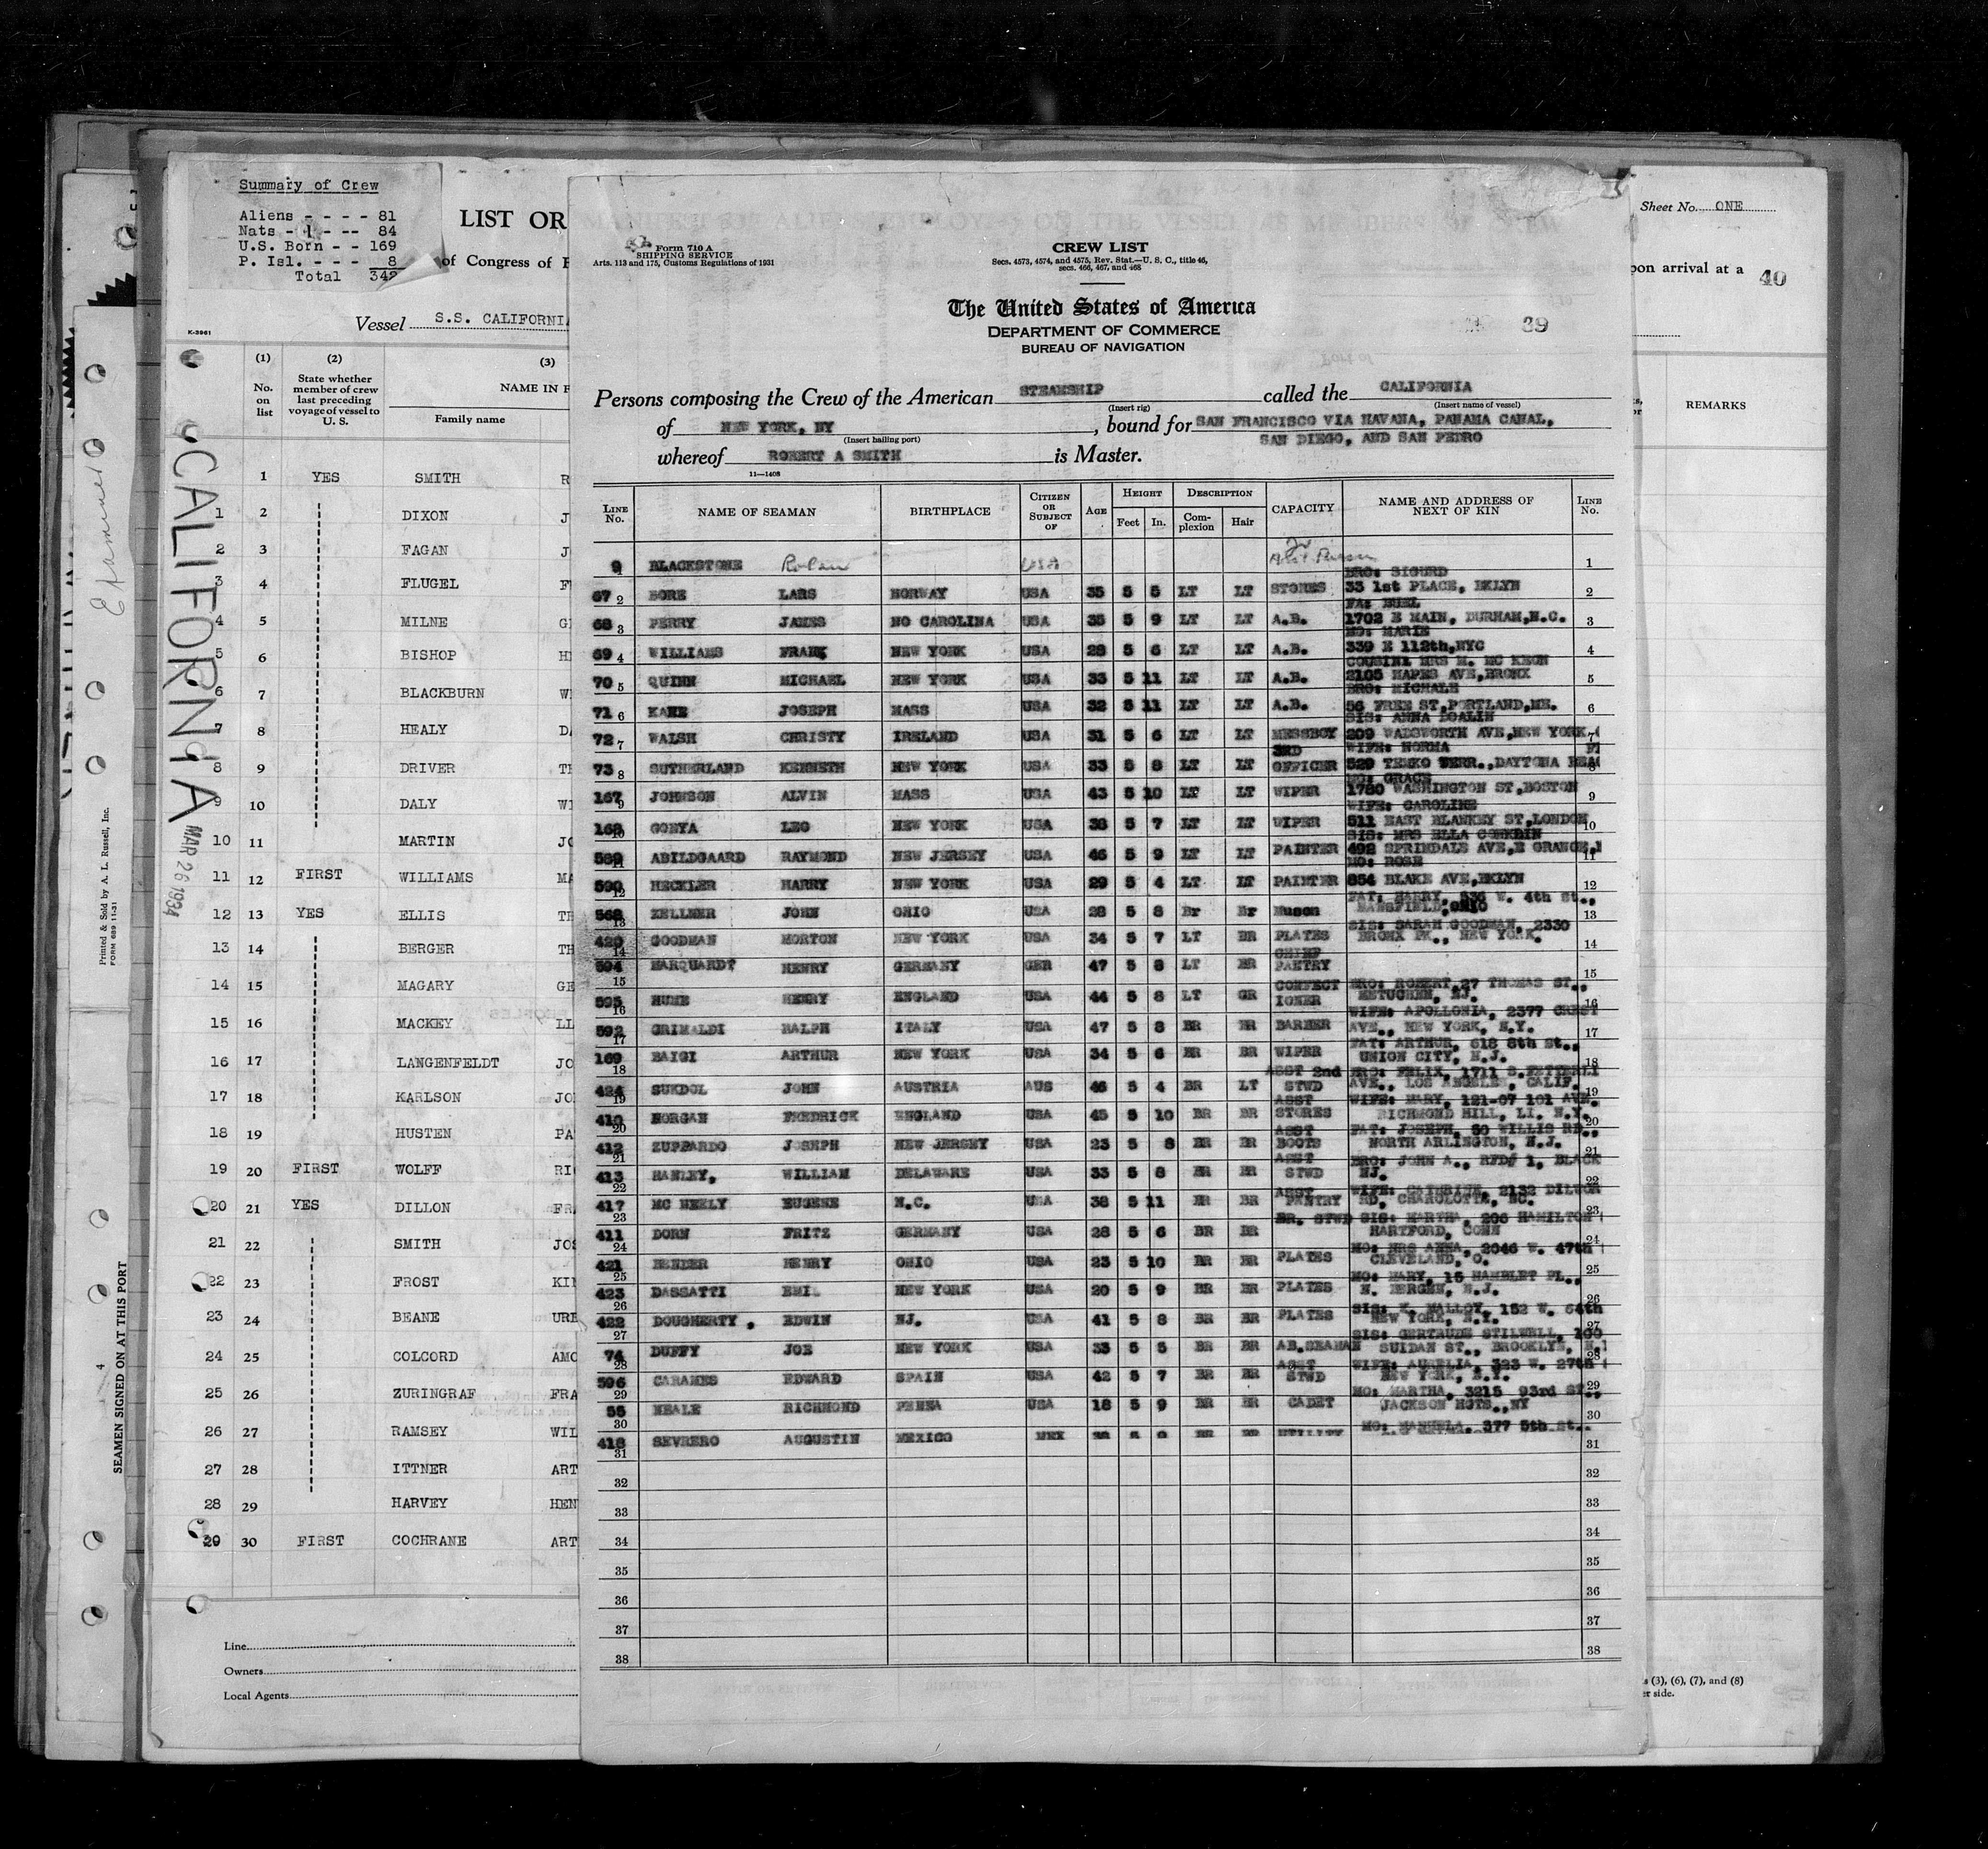 Summary of Crew
Aliens - - - - 81
Nats - 1 - -- 84
U.S. Born - - 169
P. Isl. - - - 8
Total 342
LIST OR
of Congress of F
Vessel S.S. CALIFORNIA
K-3961
(1) (2) (3)
No. on list
State whether member of crew last preceding voyage of vessel to U. S.
NAME IN F
Family name
CALIFORNIA
MAR 26 1934
1 YES SMITH R
1 2 DIXON J
2 3 FAGAN J
3 4 FLUGEL F
4 5 MILNE G
5 6 BISHOP H
6 7 BLACKBURN W
7 8 HEALY D
8 9 DRIVER T
9 10 DALY W
10 11 MARTIN JO
11 12 FIRST WILLIAMS MA
12 13 YES ELLIS TH
13 14 BERGER TH
14 15 MAGARY GE
15 16 MACKEY LL
16 17 LANGENFELDT JO
17 18 KARLSON JO
18 19 HUSTEN PA
19 20 FIRST WOLFF RI
20 21 YES DILLON FR
21 22 SMITH JOS
22 23 FROST KI
23 24 BEANE URE
24 25 COLCORD AMO
25 26 ZURINGRAF FRA
26 27 RAMSEY WIL
27 28 ITTNER ART
28 29 HARVEY HEN
29 30 FIRST COCHRANE ART
Line
Owners
Local Agents
Printed & Sold by A. L. Russell, Inc.
FORM 689 11-31
SEAMEN SIGNED ON AT THIS PORT
4
Form 710 A
SHIPPING SERVICE
Arts. 113 and 175, Customs Regulations of 1931
CREW LIST
Secs. 4573, 4574, and 4575, Rev. Stat.—U. S. C., title 46,
secs. 466, 467, and 468
The United States of America
DEPARTMENT OF COMMERCE
BUREAU OF NAVIGATION
39
Persons composing the Crew of the American STEAMSHIP called the CALIFORNIA
(Insert rig) (Insert name of vessel)
of NEW YORK, NY, bound for SAN FRANCISCO VIA HAVANA, PANAMA CANAL,
(Insert hailing port) SAN DIEGO, AND SAN PEDRO
whereof ROBERT A SMITH is Master.
11—1408
LINE No. NAME OF SEAMAN BIRTHPLACE CITIZEN OR SUBJECT OF AGE HEIGHT Feet In. DESCRIPTION Complexion Hair CAPACITY NAME AND ADDRESS OF NEXT OF KIN LINE No.
9 BLACKSTONE USA 1
BRO: SIGURD
67 2 BORE LARS NORWAY USA 35 5 5 LT LT STORES 33 1st PLACE, BKLYN 2
68 3 PERRY JAMES NO CAROLINA USA 35 5 9 LT LT A.B. 1702 E MAIN, DURHAM,N.C. 3
MO: MARIE
69 4 WILLIAMS FRANK NEW YORK USA 28 5 6 LT LT A.B. 339 E 112th,NYC 4
COUSIN: MRS M. MC KEON
70 5 QUINN MICHAEL NEW YORK USA 33 5 11 LT LT A.B. 2105 MAPES AVE,BRONX 5
BRO: MICHALE
71 6 KANE JOSEPH MASS USA 32 5 11 LT LT A.B. 56 FREE ST,PORTLAND,ME. 6
72 7 WALSH CHRISTY IRELAND USA 31 5 6 LT LT MESSBOY 209 WADSWORTH AVE,NEW YORK 7
3RD WIFE: NORMA
73 8 SUTHERLAND KENNETH NEW YORK USA 33 5 8 LT LT OFFICER 8
MO: GRACE
167 9 JOHNSON ALVIN MASS USA 43 5 10 LT LT WIPER 1780 WASHINGTON ST,BOSTON 9
WIFE: CAROLINE
168 10 GONYA LEO NEW YORK USA 38 5 7 LT LT WIPER 10
589 11 ABILDGAARD RAYMOND NEW JERSEY USA 46 5 9 LT LT PAINTER 11
MO: ROSE
590 12 HECKLER HARRY NEW YORK USA 29 5 4 LT LT PAINTER 854 BLAKE AVE,BKLYN 12
FAT: HARRY, 336 W. 4th St.,
568 13 ZELLNER JOHN OHIO USA 28 5 8 Br Br MANSFIELD,OHIO 13
SIS: SARAH GOODMAN, 2330
420 14 GOODMAN MORTON NEW YORK USA 34 5 7 LT BR PLATES BRONX PK., NEW YORK. 14
CHIEF
594 15 MARQUARDT HENRY GERMANY GER 47 5 8 LT BR PANTRY 15
CONFECT BRO: ROBERT,27 THOMAS ST.,
595 16 HUME HENRY ENGLAND USA 44 5 8 LT GR IONER METUCHEN, NJ. 16
WIFE: APOLLONIA, 2377 CREST
592 17 GRIMALDI RALPH ITALY USA 47 5 8 BR BR BARBER AVE., NEW YORK, N.Y. 17
FAT: ARTHUR, 618 8th St.,
169 18 BAIGI ARTHUR NEW YORK USA 34 5 6 BR BR WIPER UNION CITY, N.J. 18
ASST 2nd BRO: FELIX, 1711 S.
424 19 SUKDOL JOHN AUSTRIA AUS 46 5 4 BR LT STWD AVE., LOS ANGELES, CALIF. 19
ASST WIFE: MARY, 121-07 101 AVE.
410 20 MORGAN FREDRICK ENGLAND USA 45 5 10 BR BR STORES RICHMOND HILL, LI. N.Y. 20
ASST FAT: JOSEPH, 60 WILLIS RD.,
412 21 ZUPPARDO JOSEPH NEW JERSEY USA 23 5 8 BR BR BOOTS NORTH ARLINGTON, N.J. 21
ASST BRO: JOHN A., RFD# 1, BLACK
413 22 HANLEY, WILLIAM DELAWARE USA 33 5 8 BR BR STWD NJ. 22
ASST
417 23 MC NEELY EUGENE N.C. USA 38 5 11 BR BR PANTRY RD, CHAROLOTTE, NC. 23
BR. STWD SIS: MARTHA, 206 HAMILTON
411 24 DORN FRITZ GERMANY USA 28 5 6 BR BR HARTFORD, CONN 24
MO: MRS ANNA, 2046 W. 47th
421 25 BENDER HENRY OHIO USA 23 5 10 BR BR PLATES CLEVELAND, O. 25
MO: MARY, 15 HAMBLET PL.,
423 26 DASSATTI EMIL NEW YORK USA 20 5 9 BR BR PLATES N. BERGEN, N.J. 26
SIS: K. MALLOY, 152 W. 64th
422 27 DOUGHERTY, EDWIN NJ. USA 41 5 8 BR BR PLATES NEW YORK, N.Y. 27
SIS: GERTRUDE STILWELL, 100
74 28 DUFFY JOE NEW YORK USA 33 5 5 BR BR AB.SEAMAN SUIDAN ST., BROOKLYN, N. 28
ASST WIFE: AURELIA, 323 W. 27th
596 29 CARAMES EDWARD SPAIN USA 42 5 7 BR BR STWD NEW YORK, N.Y. 29
MO: MARTHA, 3215 93rd ST.,
55 30 NEALE RICHMOND PENNA USA 18 5 9 BR BR CADET JACKSON HGTS.,NY 30
MO: MANUELA, 377 5th St..
418 31 SEVRERO AUGUSTIN MEXICO MEX UTILITY 31
32 32
33 33
34 34
35 35
36 36
37 37
38 38
Sheet No. ONE
pon arrival at a 40
REMARKS
s (3), (6), (7), and (8)
er side.